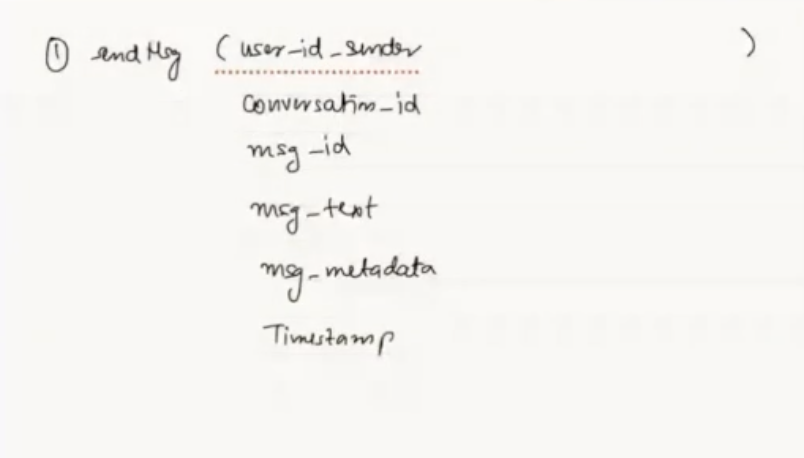 ① sendMsg (user_id_sender )
conversation_id
msg_id
msg_text
msg_metadata
Timestamp